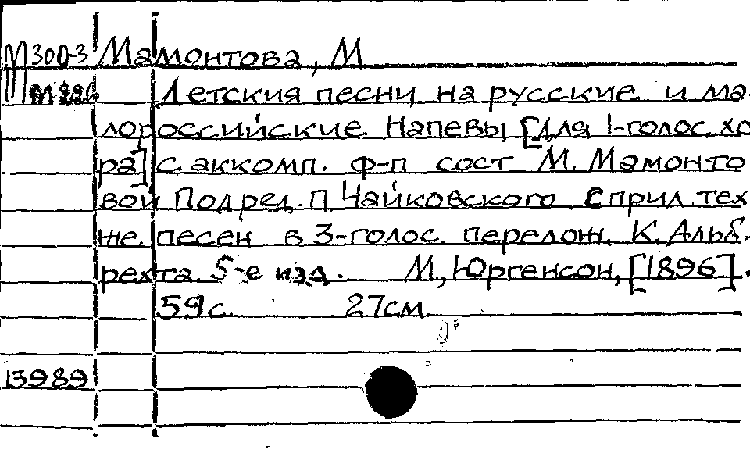 М300-3 Мамонтова, М
Детския песни на русские и ма-
лороссийские напевы [для 1-голос. хо
ра] с аккомп. ф-п сост М. Мамонто
вой Под ред. П Чайковского с прил. тех
же песен в 3-голос. перелож. К. Альб.
рехта 5-е изд. М, Юргенсон, [1896].
59 с. 27см.
13989